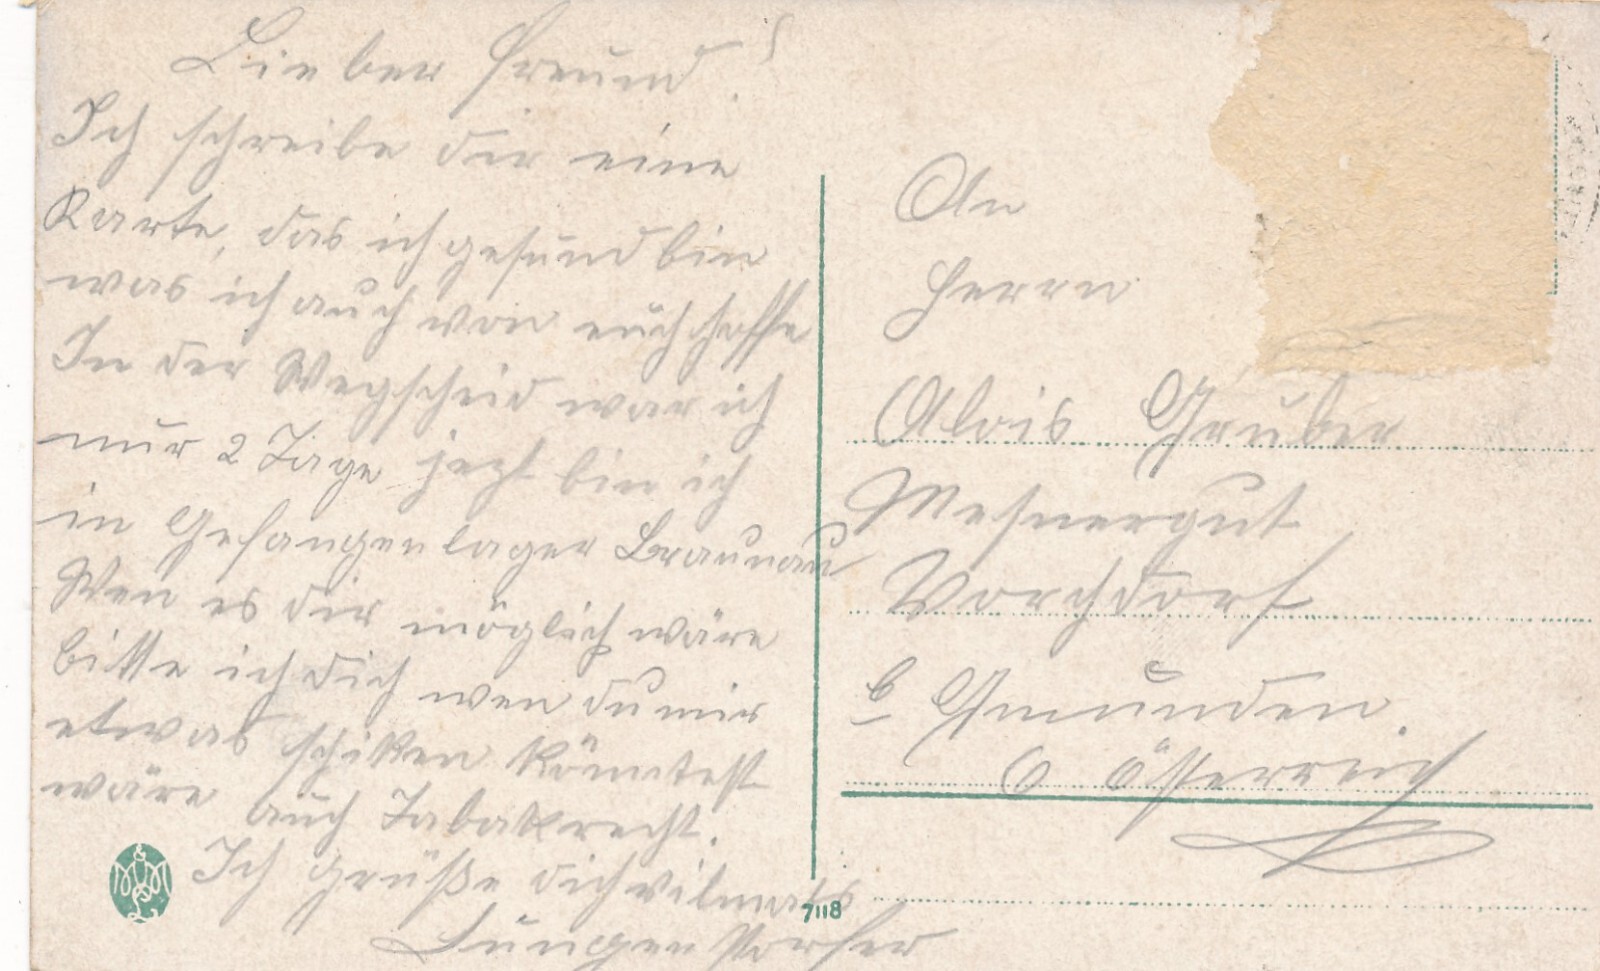 Lieber Freund!
Ich schreibe dir eine
Karte, das ich gesund bin
was ich auch von euch hoffe
In der Wegscheid war ich
nur 2 Tage jezt bin ich
in Gefangenlager Braunau
Wen es dir möglich wäre
bitte ich dich wen du mir
etwas schiken könntest
wäre auch Tabak recht.
Ich grüße dich vilmals
An
Herrn
Alois Gruber
Mesnergut
Vorchdorf
b Gmunden.
O Österreich
7118